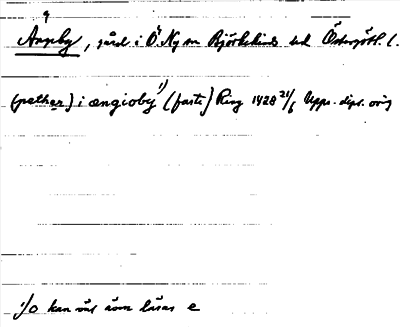 Ängby, gård i Ö. Ny sn Björkekinds hd Östergötl. l.
(pether) i ængioby 1) (faste) Ring 1428 21/6 Upps. dipl. orig
1) o kan väl även läsas e